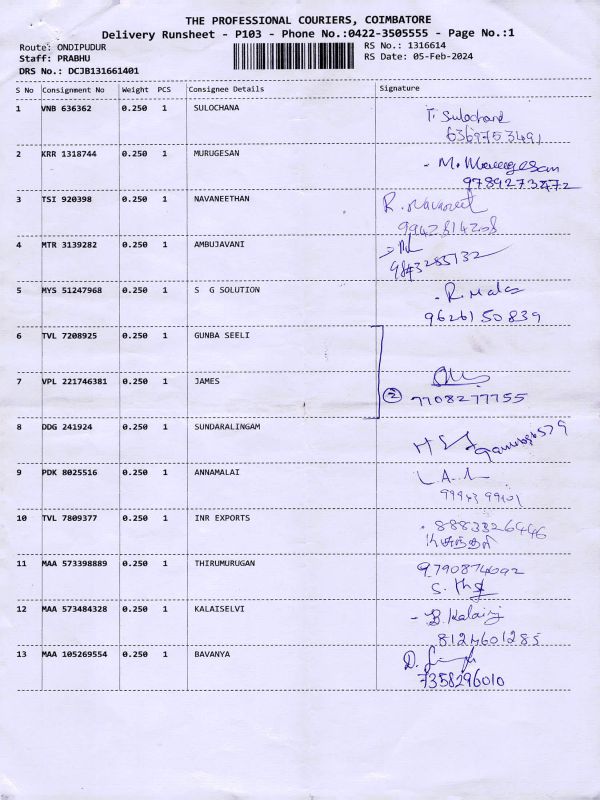 THE PROFESSIONAL COURIERS, COIMBATORE
Delivery Runsheet - P103 - Phone No.:0422-3505555 - Page No.:1
Route: ONDIPUDUR RS No.: 1316614
Staff: PRABHU RS Date: 05-Feb-2024
DRS No.: DCJB131661401
S No Consignment No Weight PCS Consignee Details Signature
1 VNB 636362 0.250 1 SULOCHANA T. Sulochana
6369753491
2 KRR 1318744 0.250 1 MURUGESAN - M. Murugesan
9789273472
3 TSI 920398 0.250 1 NAVANEETHAN R. Navaneet
9942814208
4 MTR 3139282 0.250 1 AMBUJAVANI
9843285132
5 MYS 51247968 0.250 1 S G SOLUTION - R. Mala
9626150839
6 TVL 7208925 0.250 1 GUNBA SEELI
7 VPL 221746381 0.250 1 JAMES
2 7708277755
8 DDG 241924 0.250 1 SUNDARALINGAM
9 PDK 8025516 0.250 1 ANNAMALAI
10 TVL 7809377 0.250 1 INR EXPORTS 8883326446
11 MAA 573398889 0.250 1 THIRUMURUGAN 9790874092
12 MAA 573484328 0.250 1 KALAISELVI - B. Kalai
8124601285
13 MAA 105269554 0.250 1 BAVANYA
7358296010